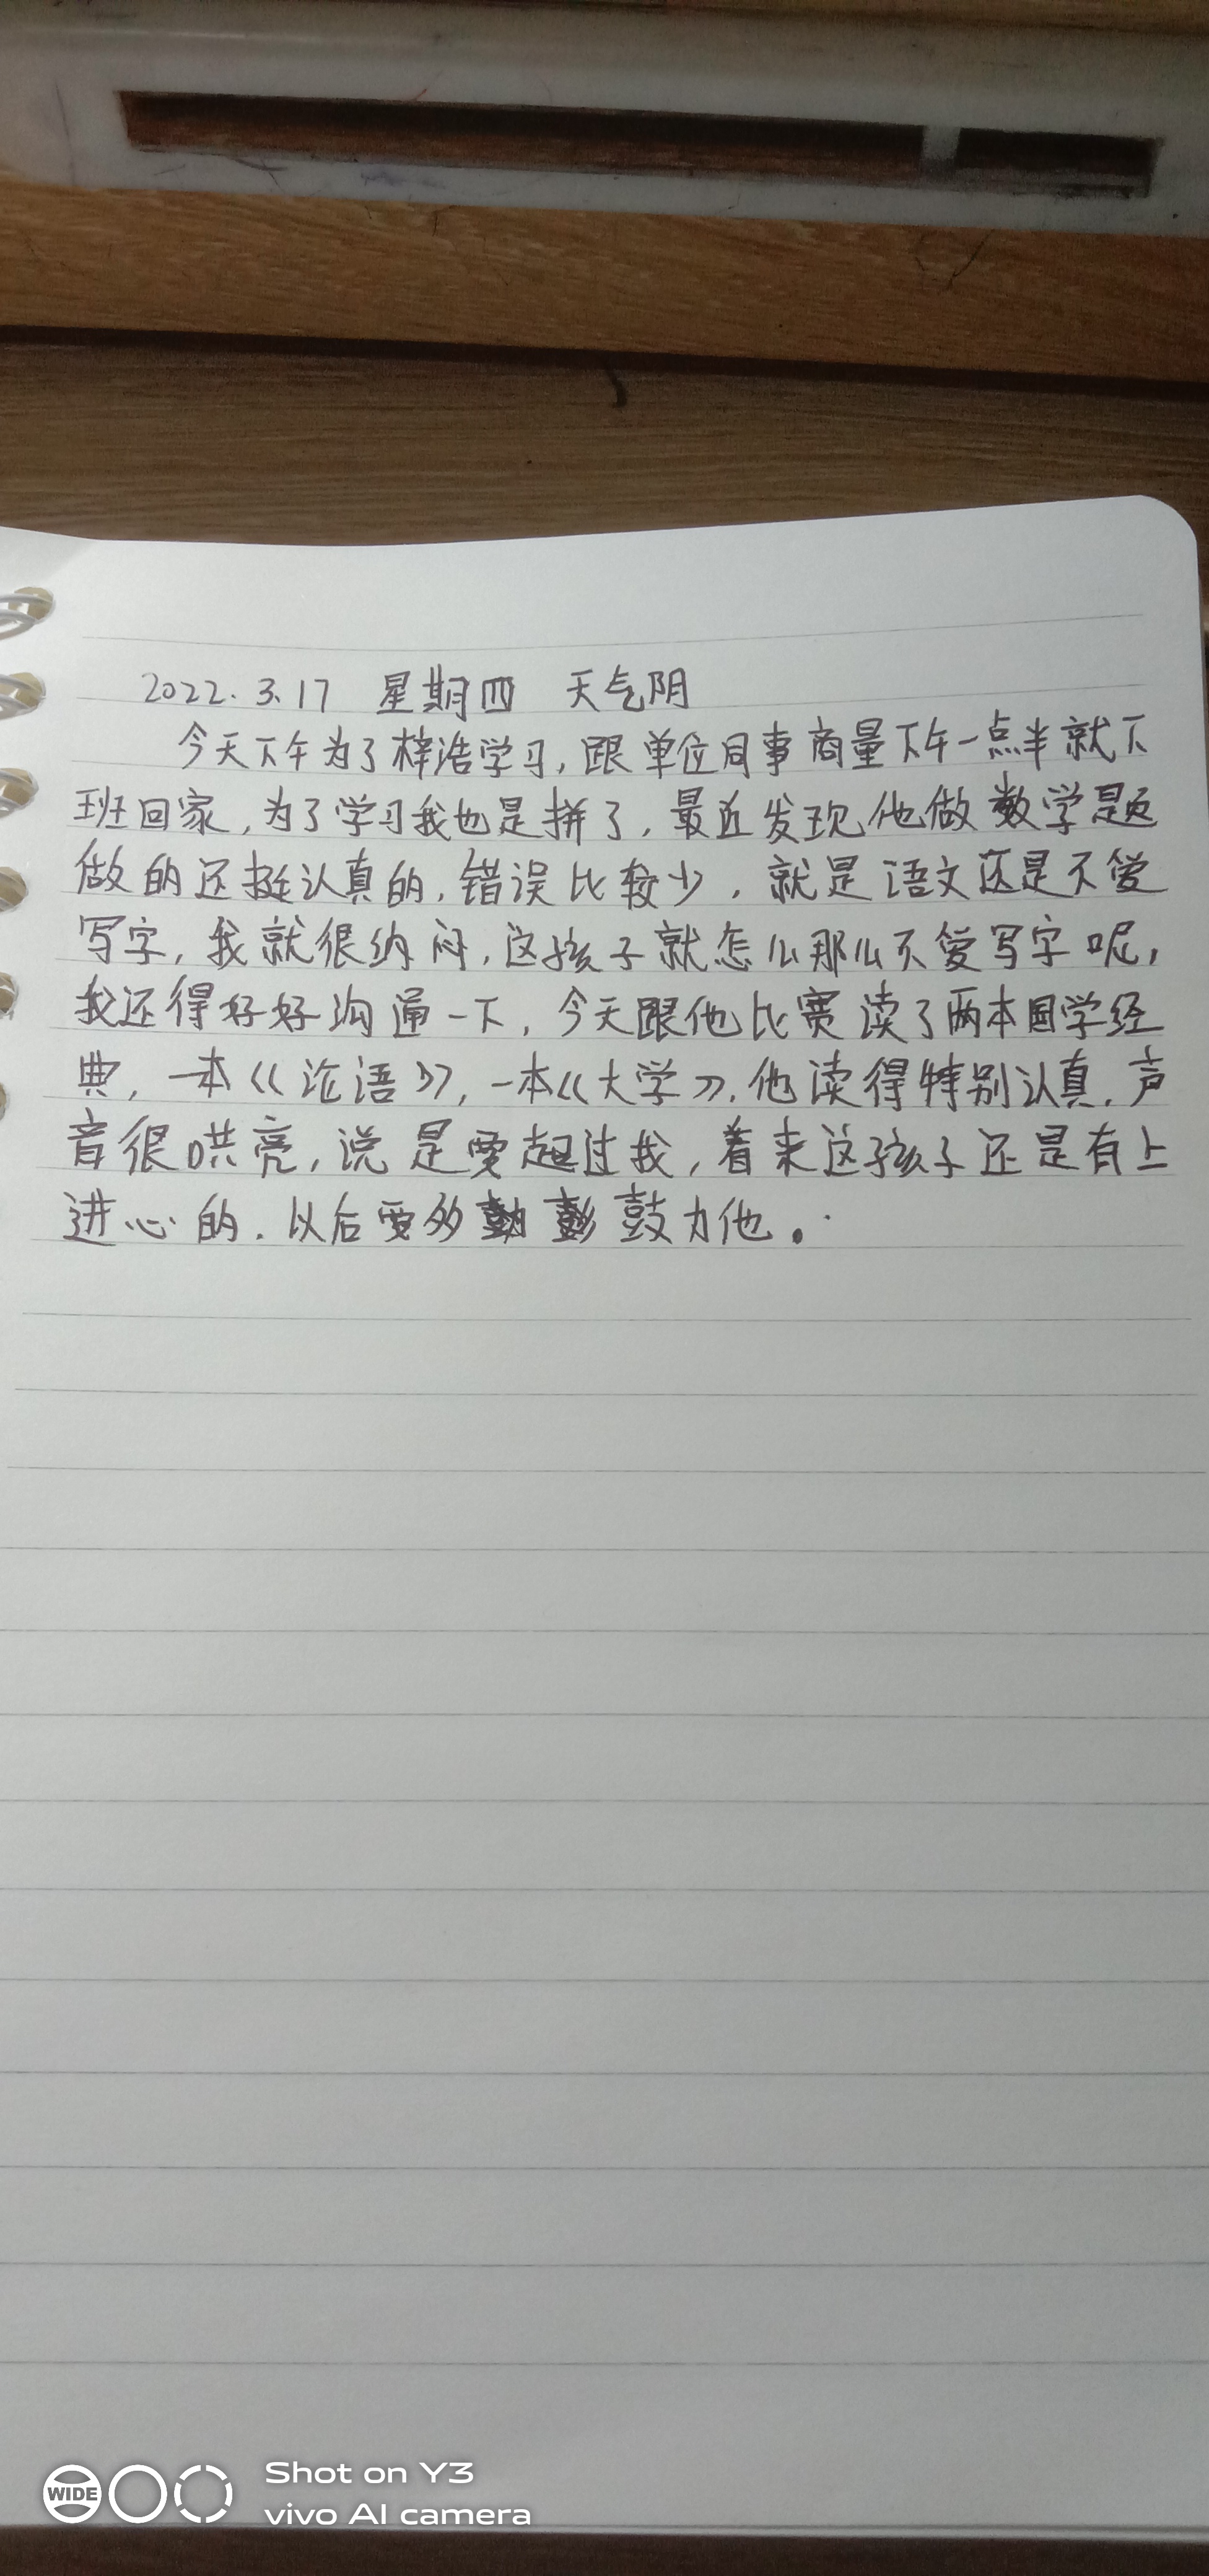 2022.3.17 星期四 天气阴
今天下午为了梓浩学习,跟单位同事商量下午一点半就下
班回家,为了学习我也是拼了,最近发现他做数学题
做的还挺认真的,错误比较少,就是语文还是不爱
写字,我就很纳闷,这孩子就怎么那么不爱写字呢,
我还得好好沟通一下,今天跟他比赛读了两本国学经
典,一本《论语》,一本《大学》,他读得特别认真,声
音很哄亮,说是要超过我,看来这孩子还是有上
进心的,以后要多鼓力他。
WIDE
Shot on Y3
vivo AI camera